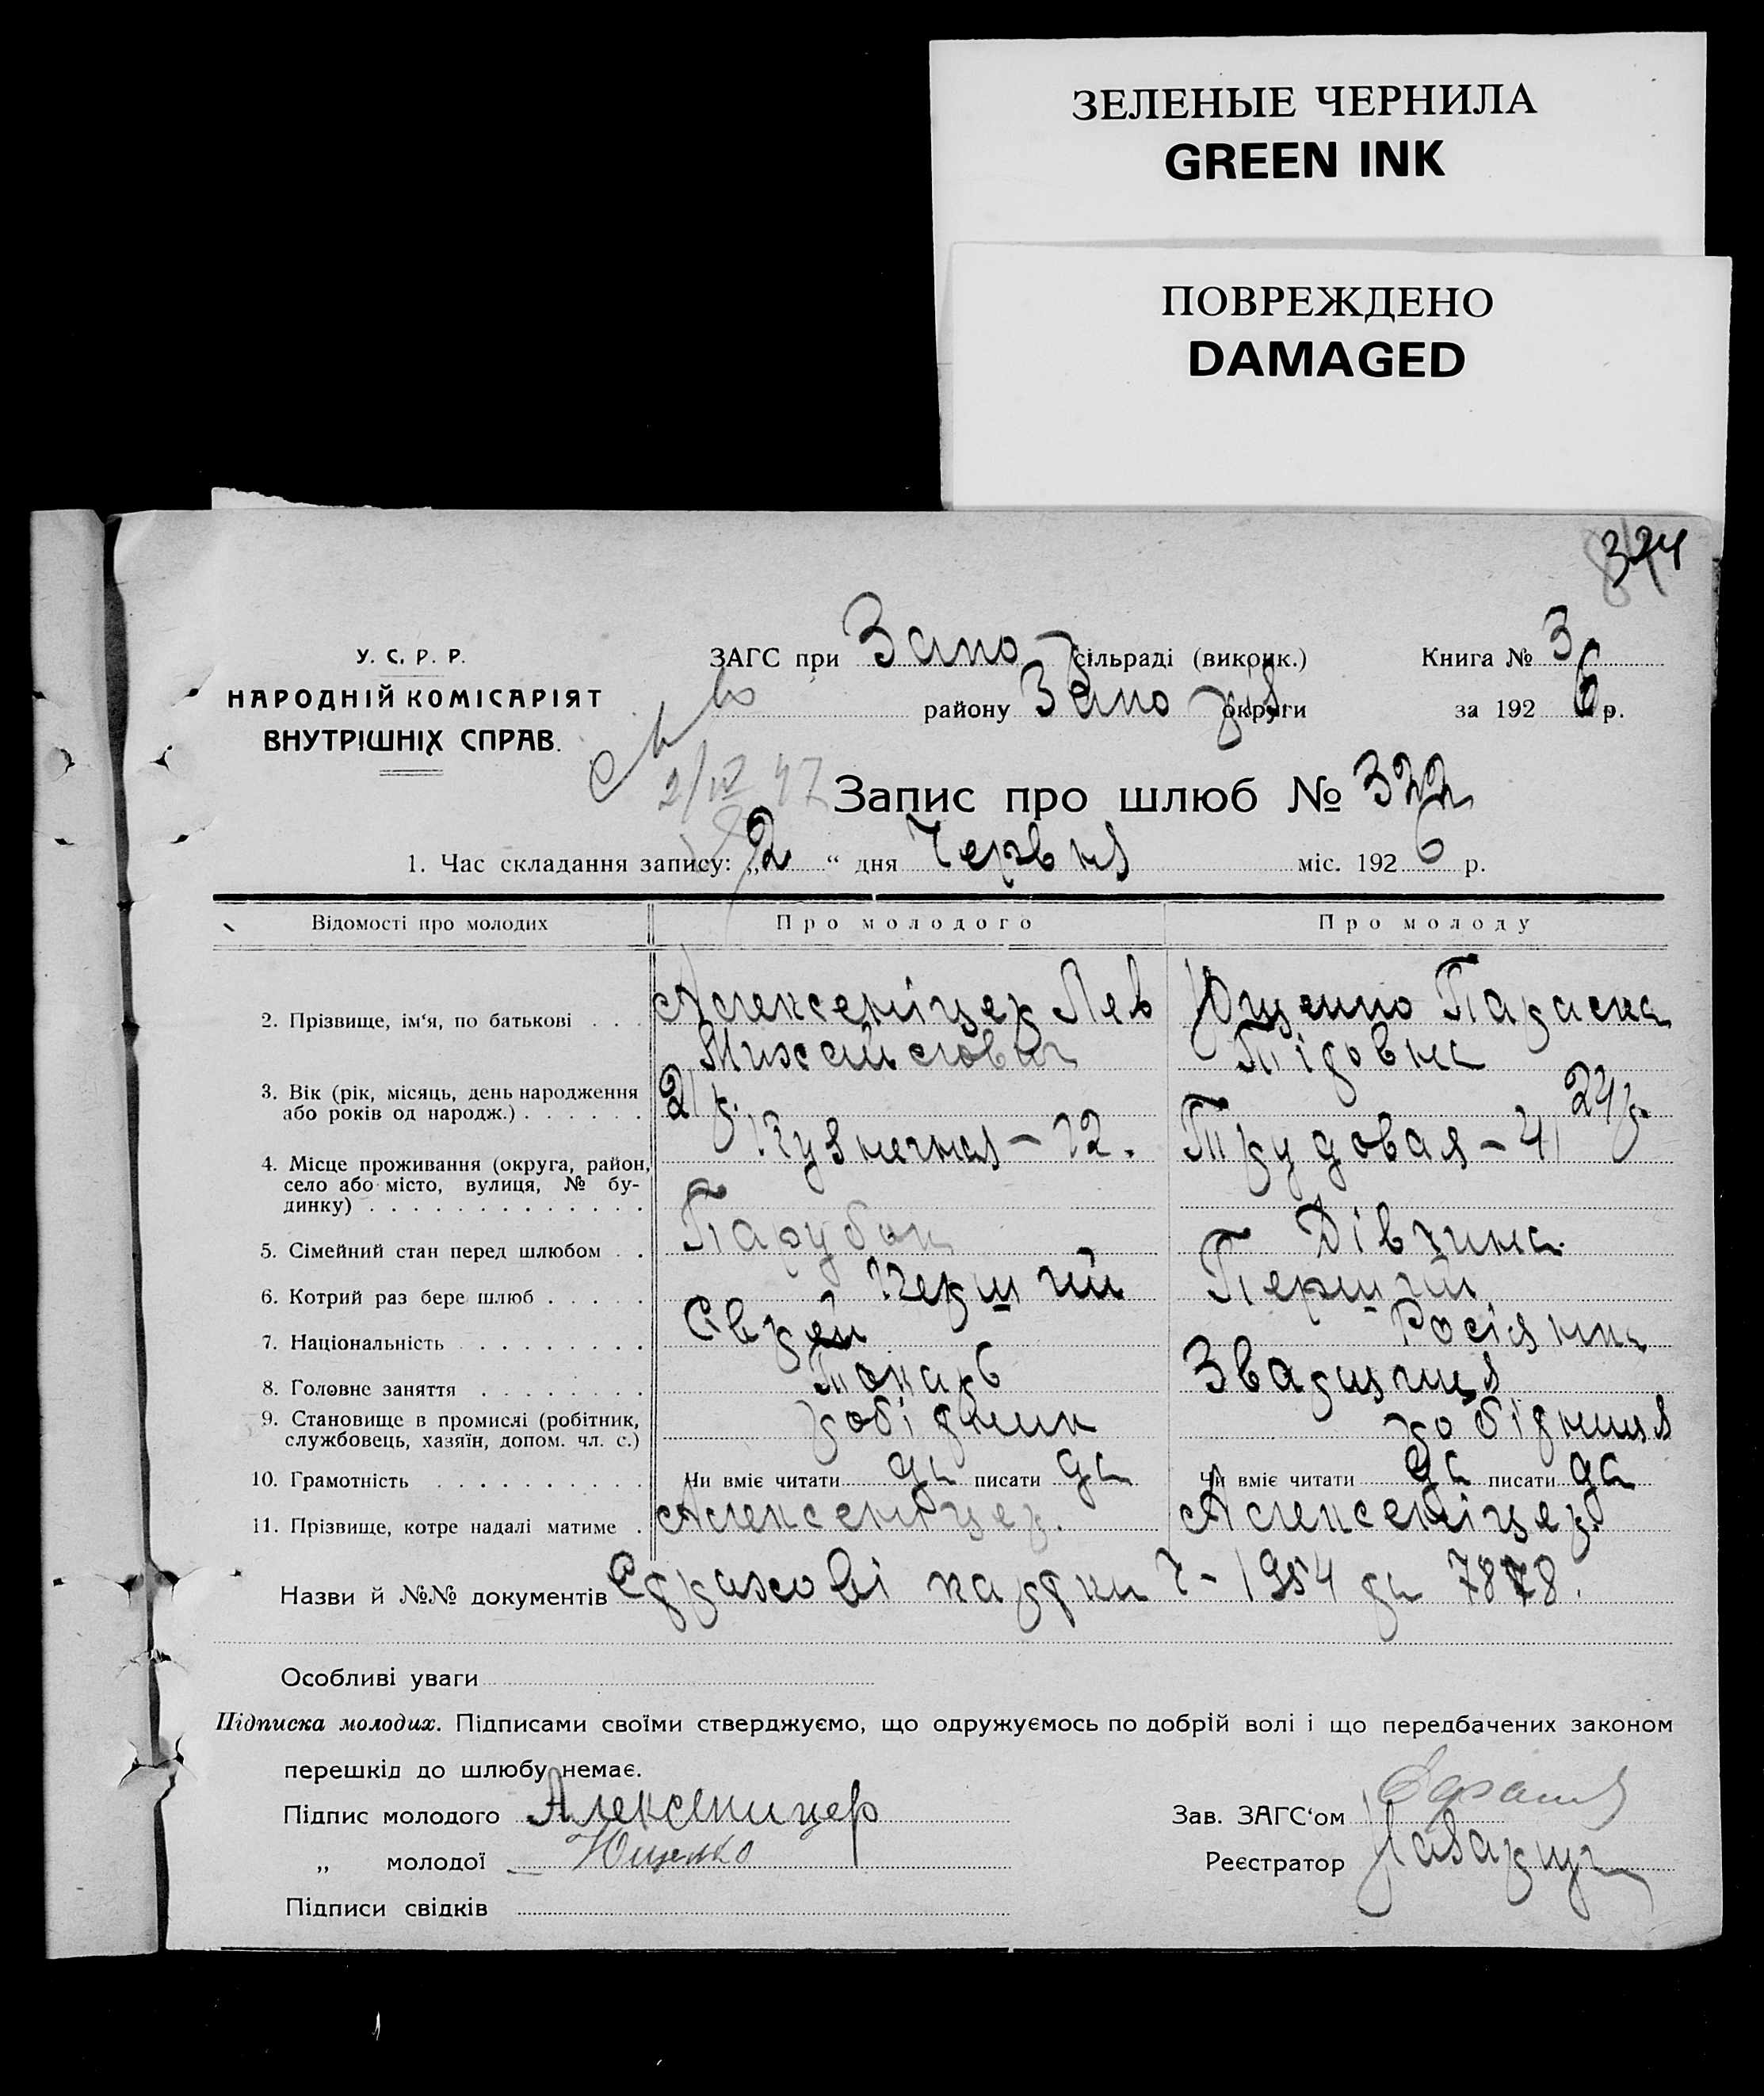 ЗЕЛЕНЫЕ ЧЕРНИЛА
GREEN INK
ПОВРЕЖДЕНО
DAMAGED
У. С. Р. Р.
НАРОДНІЙ КОМІСАРІЯТ
ВНУТРІШНІХ СПРАВ.
ЗАГС при Запо сільраді (виконк.)
району Запо округи
Книга № 3
за 1926 р.
Запис про шлюб № 322
1. Час складання запису: „2“ дня Червня міс. 1926 р.
Відомості про молодих Про молодого Про молоду
2. Прізвище, ім‘я, по батькові Алексеніцер Лев Ющенко Параска
Михайлович Тідовна
3. Вік (рік, місяць, день народження 21 р. 24 р.
або років од народж.)
4. Місце проживання (округа, район, Кузнечная – 12. Трудовая – 41
село або місто, вулиця, № бу-
динку)
5. Сімейний стан перед шлюбом Парубок Дівчина
6. Котрий раз бере шлюб Перший Перший
7. Національність Єврей Росіянка
8. Головне заняття Токарь Зварщиця
9. Становище в промислі (робітник, робідник робідниця
службовець, хазяїн, допом. чл. с.)
10. Грамотність Чи вміє читати да писати да Чи вміє читати да писати да
11. Прізвище, котре надалі матиме Алексеніцер. Алексеніцер.
Назви й №№ документів Страхові картки ч – 1954 да 7878.
Особливі уваги
Підписка молодих. Підписами своїми стверджуємо, що одружуємось по добрій волі і що передбачених законом
перешкід до шлюбу немає.
Підпис молодого Алексеницер
„ молодої Ющенко
Підписи свідків
Зав. ЗАГС‘ом
Реєстратор